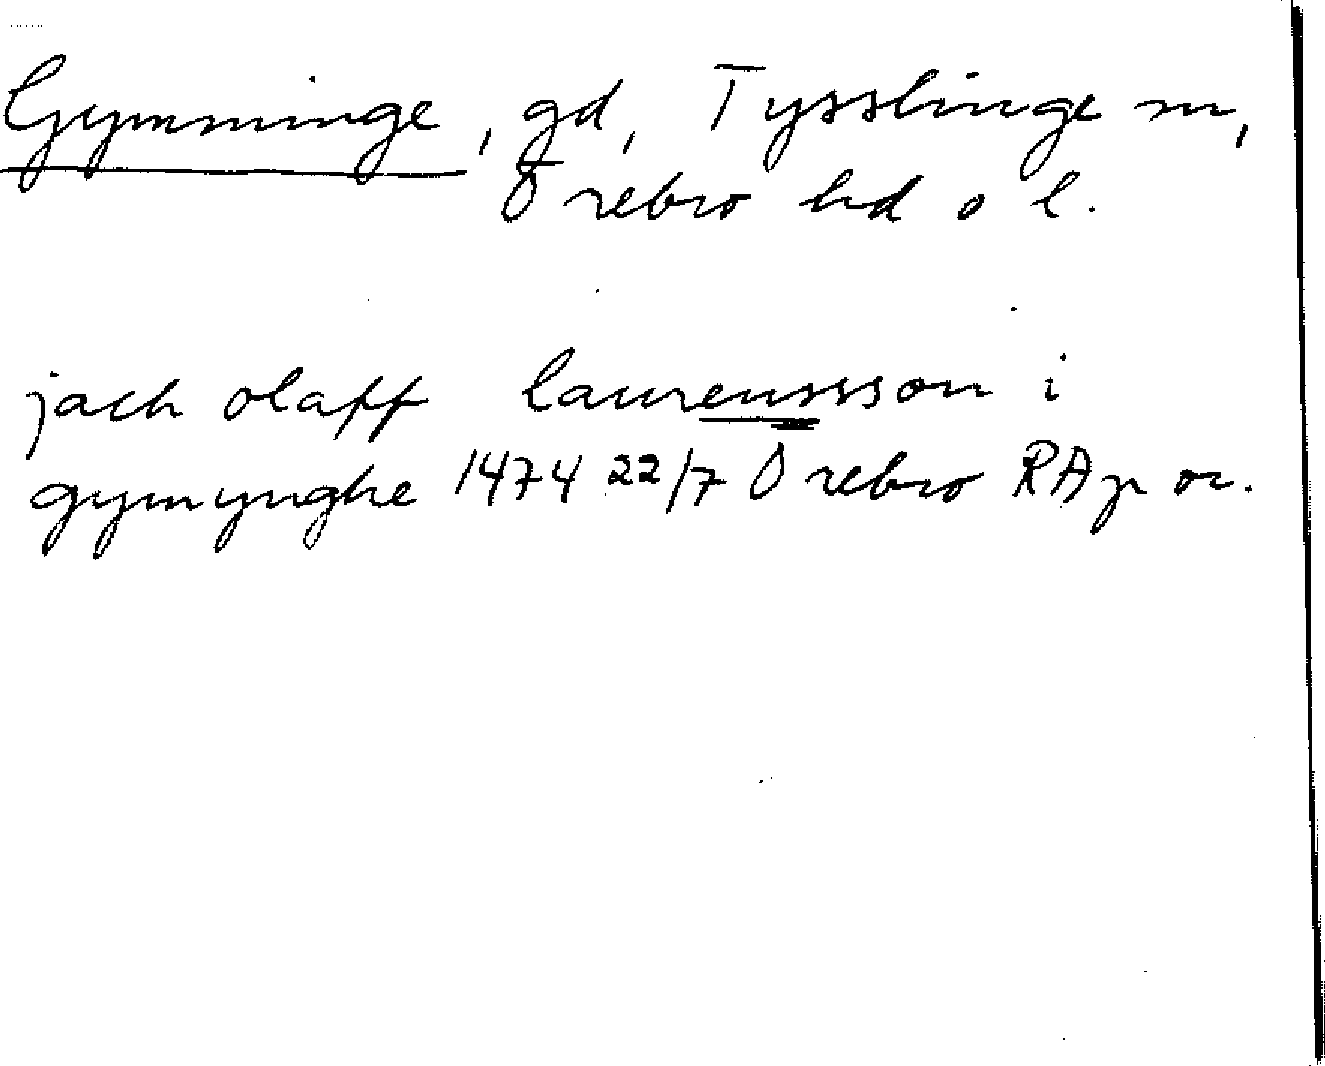 Gymninge, gd, Tysslinge sn,
Örebro hd o l.
jach olaff laurensson i
gymynghe 1474 22/7 Örebro RAp or.